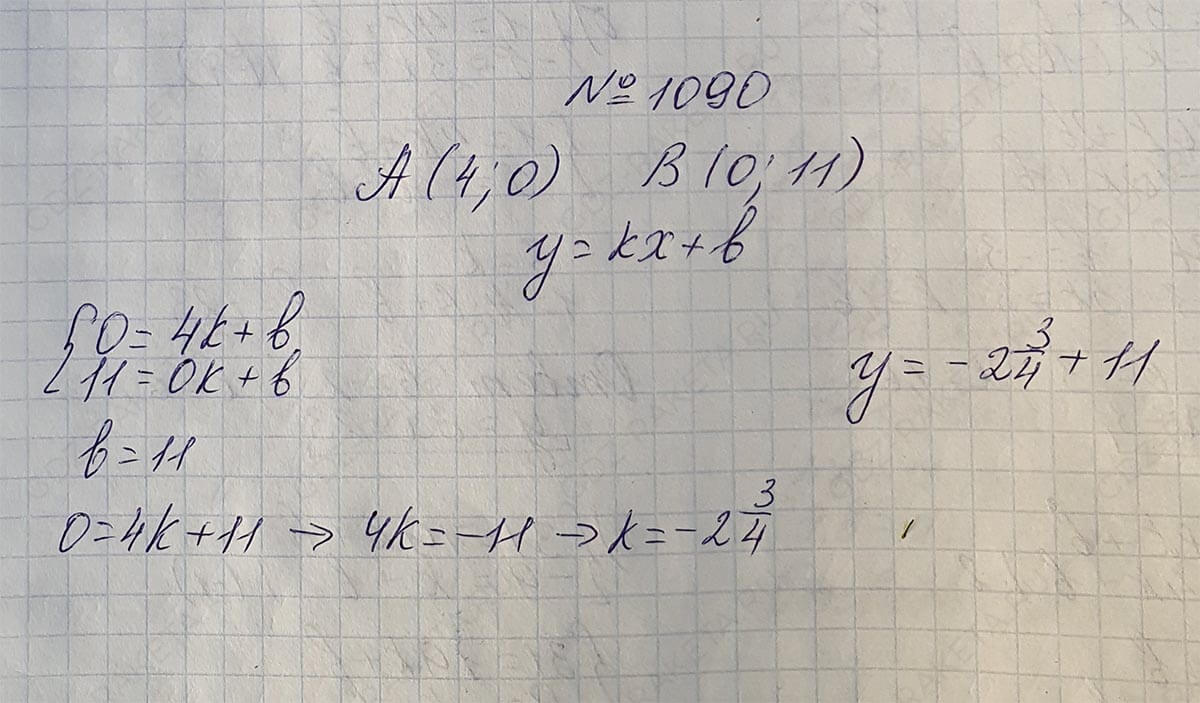 № 1090
A (4; 0) B (0; 11)
y = kx + b
{ 0 = 4k + b
11 = 0k + b
y = - 2 3/4 + 11
b = 11
0 = 4k + 11 → 4k = -11 → k = -2 3/4